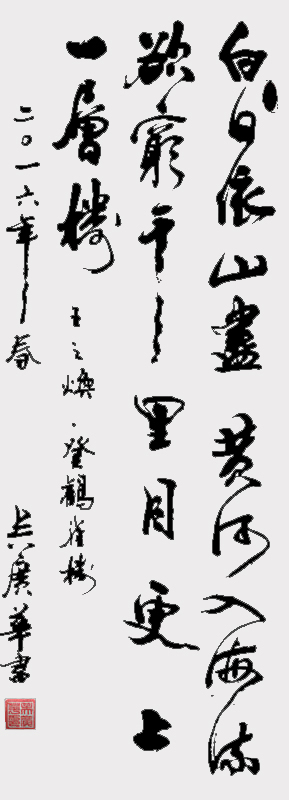 白日依山盡黄河入海流
欲窮千里目更上
一層樓
王之焕·登鶴雀樓
二〇一六年春
廣華書